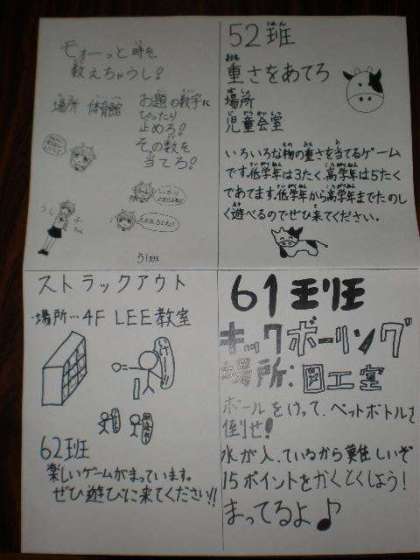 モォーっと時を
教えちゃうし?
場所 体育館
お題の数字に
ぴったり
止めろ!
その数を
当てろ!
51班
52班
重さをあてろ
場所
児童会室
いろいろな物の重さを当てるゲーム
です。低学年は3たく、高学年は5たく
であてます。低学年から高学年までたのし
く遊べるのでぜひ来てください。
ストラックアウト
場所…4F LEE教室
62班
楽しいゲームがまっています。
ぜひ遊びに来てください!!
61班
キックボーリング
場所:図工室
ボールをけって、ペットボトルを
倒せ!
水が入っているから難しいぞ
15ポイントをかくとくしよう!
まってるよ♪